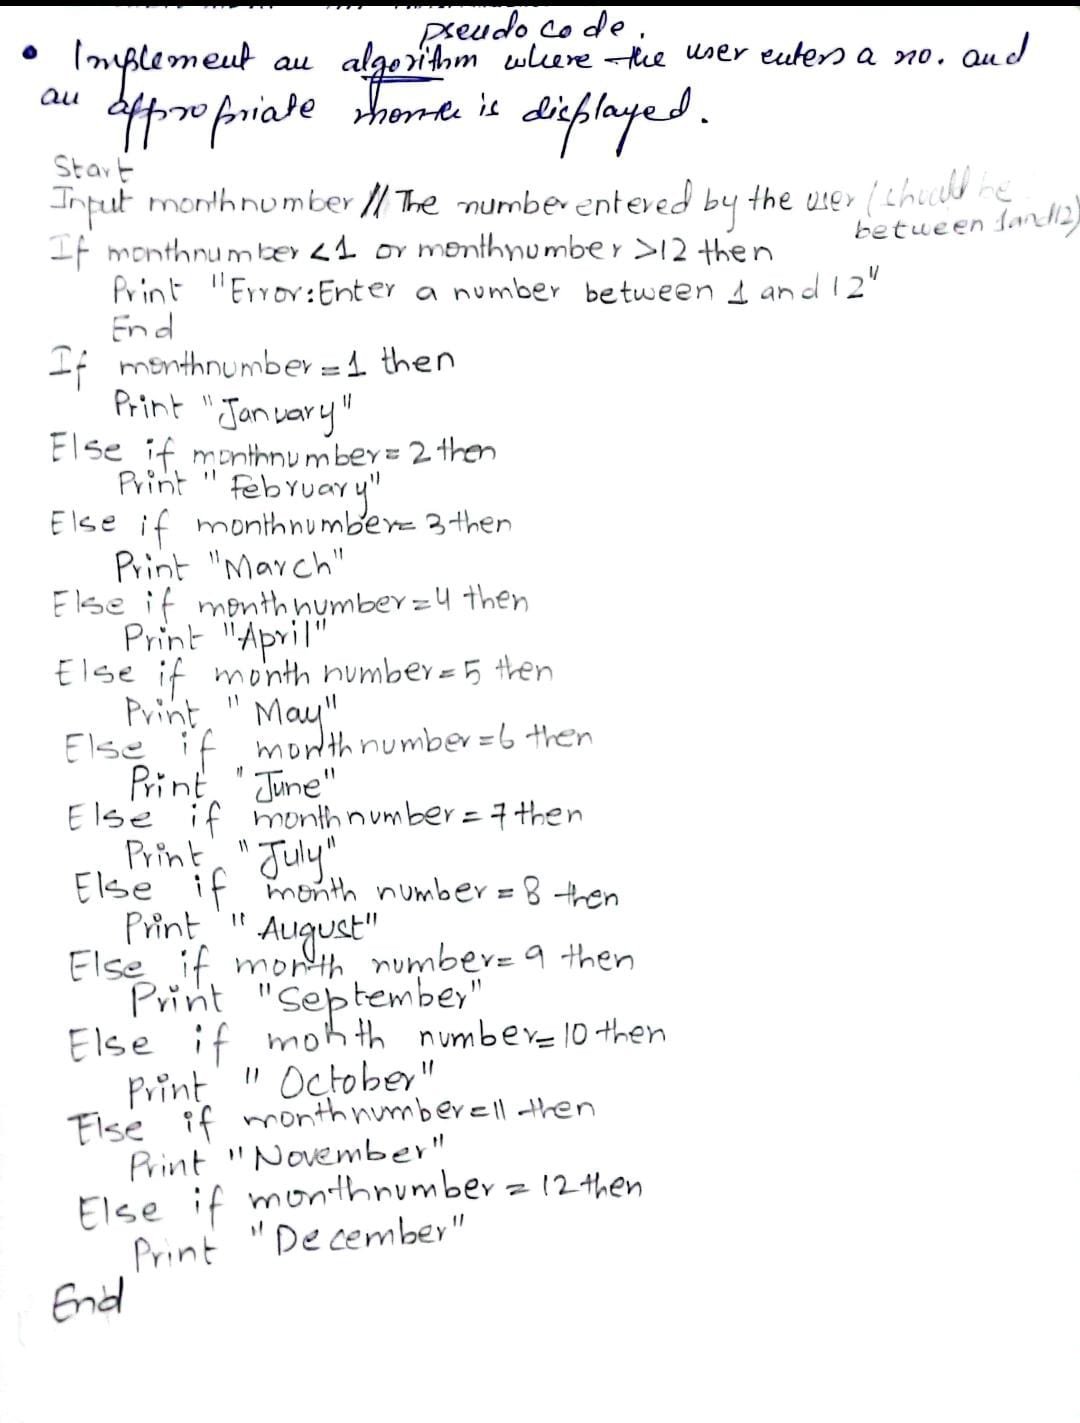 pseudo code.
• Implement an algorithm where the user enters a no. and
an appropriate month is displayed.
Start
Input monthnumber // The number entered by the user (should be
between 1 and 12)
If monthnumber <1 or monthnumber >12 then
Print "Error: Enter a number between 1 and 12"
End
If monthnumber = 1 then
Print "January"
Else if monthnumber = 2 then
Print "February"
Else if monthnumber = 3 then
Print "March"
Else if monthnumber = 4 then
Print "April"
Else if month number = 5 then
Print "May"
Else if month number = 6 then
Print "June"
Else if month number = 7 then
Print "July"
Else if month number = 8 then
Print "August"
Else if month number = 9 then
Print "September"
Else if month number = 10 then
Print "October"
Else if monthnumber = 11 then
Print "November"
Else if monthnumber = 12 then
Print "December"
End